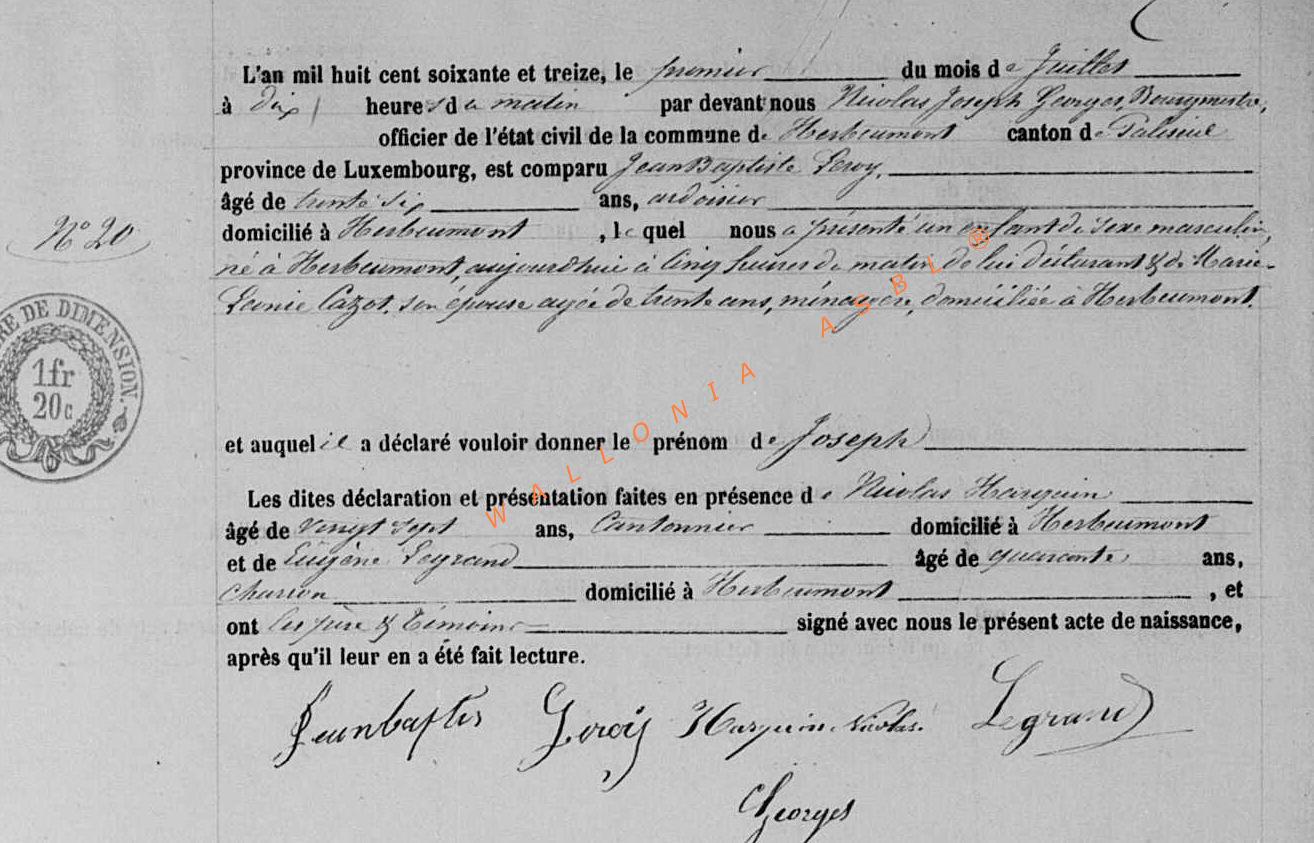 L'an mil huit cent soixante et treize, le premier du mois de Juillet
à dix heures du matin par devant nous Nicolas Joseph Georges, Bourgmestre,
officier de l'état civil de la commune de Herbeumont canton de Paliseul
province de Luxembourg, est comparu Jean Baptiste Leroy,
âgé de trente six ans, ardoisier
domicilié à Herbeumont, lequel nous a présenté un enfant de sexe masculin,
né à Herbeumont, aujourd'hui à cinq heures du matin de lui déclarant & de Marie-
Léonie Cazot, son épouse agée de trente ans, ménagère, domiciliée à Herbeumont.
N° 20
RE DE DIMENSION.
1fr
20c
et auquel il a déclaré vouloir donner le prénom de Joseph
Les dites déclaration et présentation faites en présence de Nicolas Harquin
âgé de vingt sept ans, Cantonnier domicilié à Herbeumont
et de Eugène Legrand âgé de quarante ans,
Charron domicilié à Herbeumont, et
ont les père & témoins signé avec nous le présent acte de naissance,
après qu'il leur en a été fait lecture.
Jeanbaptis Leroy Harquin Nicolas. Legrand
Georges
WALLONIA ASBL®